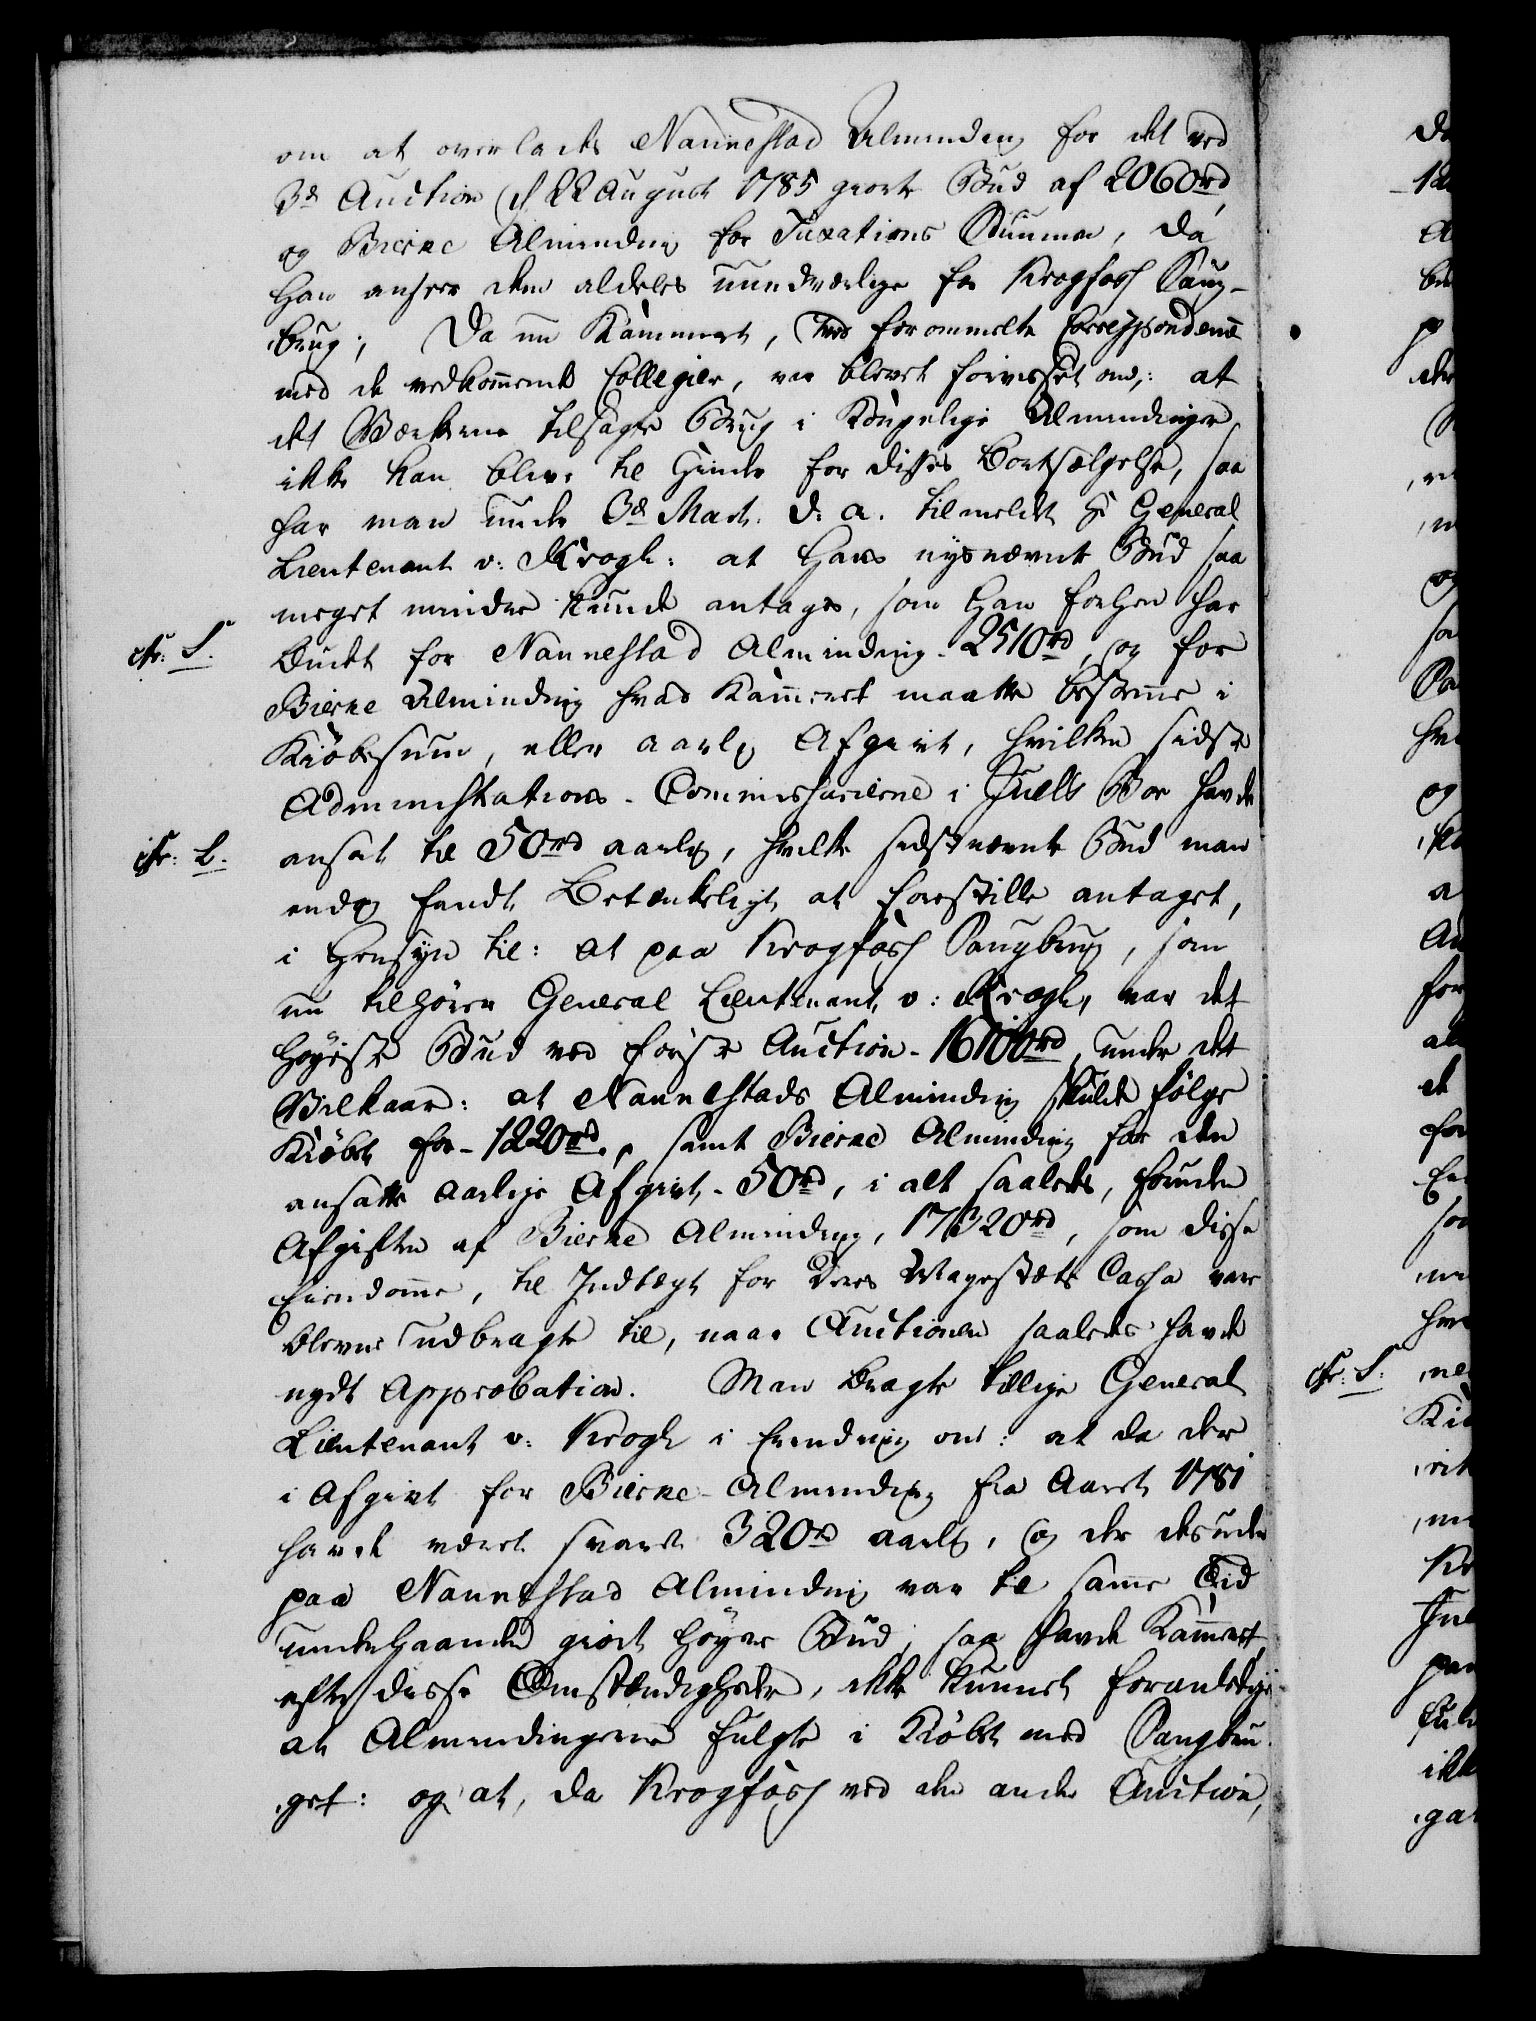 om at overlades Nannestad Alminding for det ved
3de Auction d 22 August 1785 giorte Bud af 2060rd,
og Bierke Alminding for Taxations Summen, da
Han anseer dem aldeles uundværlige for Krogfoss Saug-
brug; Da nu Kammeret, ved forommelte Correspondence
med de vedkommende Collegier, var blevet forvisset om,: at
det Værkerne tilsagte Brug i Kongelige Almindinger
ikke kan blive til Hinder for disses Bortsælgelse, saa
har man under 3de Mart. d: a. tilmeldt Hr General
Lieutenant v: Krogh: at Hans nysnævnte Bud saa
meget mindre kunde antages, som Han forhen har
cfr: S. budet for Nannestad Alminding - 2510rd, og for
Bierke Alminding hvad Kammeret maatte bestemme i
Kiøbesum, eller aarlig Afgivt, hvilken sidste
Administrations-Commissarierne i Juels Boe havde
cfr: L. ansat til 50rd aarlig, hvilke sidstnævnte Bud man
endog fandt Betænkeligt at forestille antaget,
i Hensyn til: at paa Krogfoss Saugbrug, som
nu tilhører General Lieutenant v: Krogh, var det
Høyeste Bud ved første Auction - 16100rd, under det
Vilkaar: at Nannestads Alminding skulde følge
Kiøbet for - 1220rd, samt Bierke Alminding for den
ansatte aarlige Afgivt - 50rd, i alt saaledes, foruden
Afgiften af Bierke Alminding, 17320rd, som disse
Eiendomme, til Indtægt for Deres Majestæts Cassa var
blevne udbragte til, naar Auctionen saaledes havde
nydt Approbation. Man bragte tillige General
Lieutenant v: Krogh i Erindring om: at da der
i Afgivt for Bierke-Alminding fra Aaret 1781
havde været svaret 320rd aarlig, og der desuden
paa Nannestad Alminding var til samme Tid
underhaanden giort høyere Bud, saa havde Kammeret,
efter disse Omstændigheder, ikke kunnet foranledige
at Almindingerne fulgte i Kiøbet med Saugbru-
get: og at, da Krogfoss ved den anden Auction,
cfr: S.